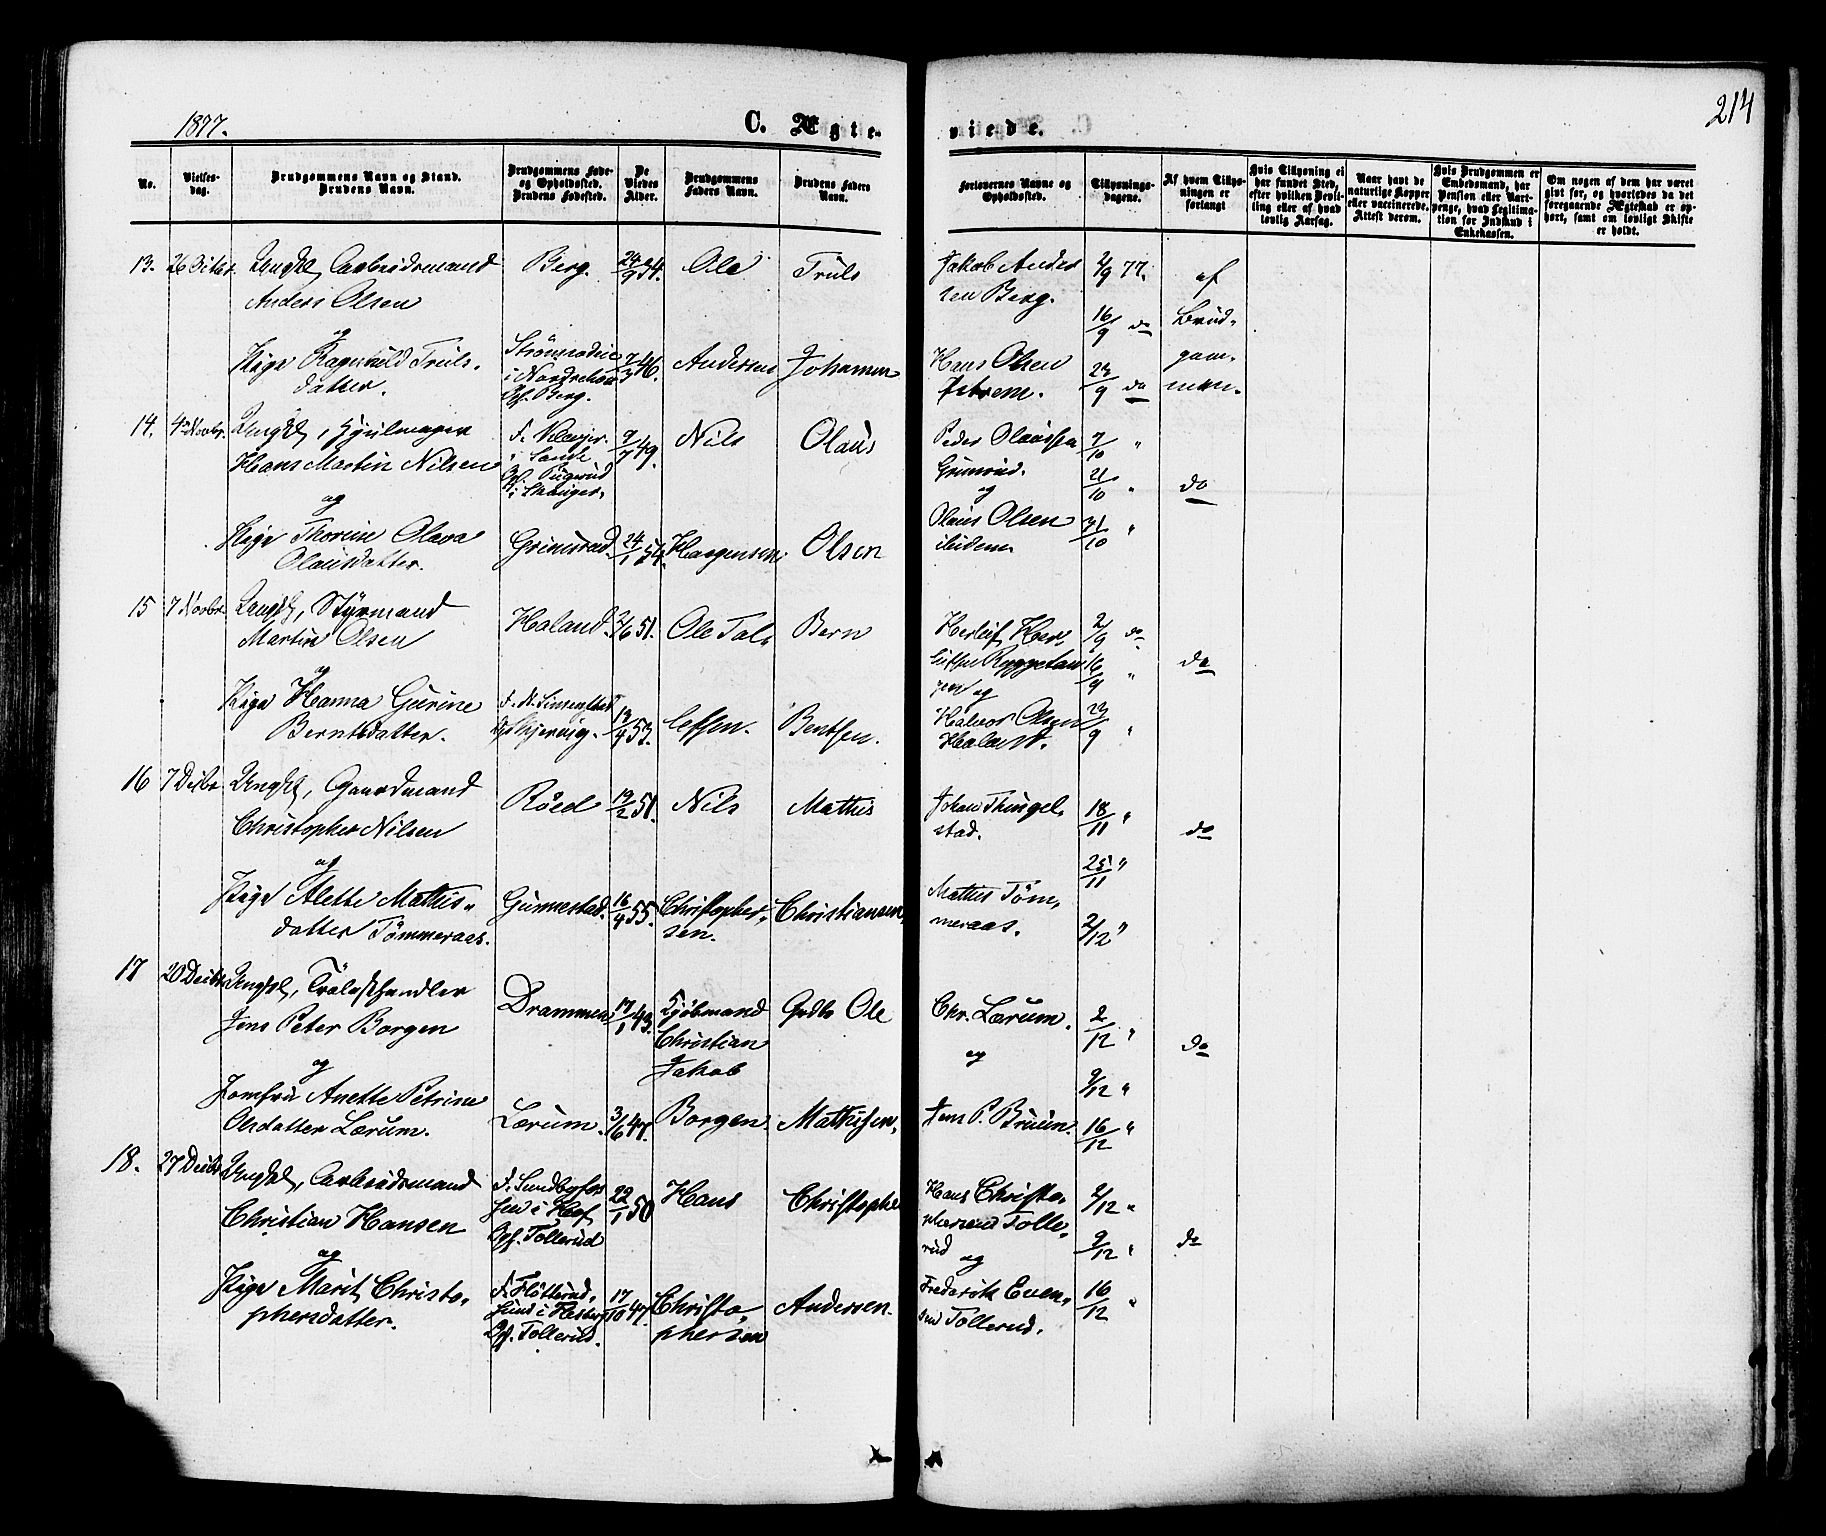 1877.
C. Ægte-
viede.
214
No.
Vielses-
dag.
Brudgommens Navn og Stand.
Brudens Navn.
Brudgommens Føde-
og Opholdssted.
Brudens Fødested.
De
Viedes
Alder.
Brudgommens
Faders Navn.
Brudens Faders
Navn.
Forlovernes Navne og
Opholdssted.
Tillysnings-
dagene.
Af hvem Tillys-
ningen er
forlangt
Hvis Tillysning ei
har fundet Sted,
efter hvilken Bevil-
ling eller af hvad
lovlig Aarsag.
Naar havt de
naturlige Kopper
eller vaccinerede.
Attest derom.
Hvis Brudgommen er
Embedsmand, har
Pension eller Vart-
penge, hvad Legitima-
tion for Indskud i
Enkekassen.
Om nogen af dem har været
givt for, og hvorledes da det
foregaaende Ægteskab er op-
hørt, samt om lovligt Skifte
er holdt.
13. 26 Octbr. Ungkl, Arbeidsmand
Anders Olsen
og
Pige Ragnhild Truls-
datter.
Berg.
i Norderhov
Of. Berg.
24/9 54.
7/3 46.
Ole
Andersen
Truls
Johannesen
Jakob Ander
sen Berg.
Hans Olsen
2/9 77.
16/9 do
23/9 do
af
Brud-
gom-
men.
14. 4 Novbr. Ungkl, Hjulmager
Hans Martin Nilsen
og
Pige Thorine Olava
Olausdatter.
i Sande
i Skauger.
Grimsrud.
7/7 49.
24/1 54.
Nils
Olaus
Olsen
Peder Olaussen
Grimsrud.
og
Olaus Olsen
ibidem
7/10 "
21/10 "
31/10 "
do
15 7 Novbr. Ungkl, Styrmand
Martin Olsen
og
Pige Hanna Gurine
Berntsdatter.
Haland.
2/6 51.
13/4 53.
Ole Tol-
lefsen.
Bern
Bentsen.
Herleif Her-
og
Halvor Olsen
Haland.
2/9 do
16/9 "
23/9 "
do
16 7 Decbr. Ungkl, Gaardmand
Christopher Nilsen
og
Pige Alette Mathis-
datter Tömmeraas.
Röed
Gunnestad.
19/2 51.
16/4 55.
Nils
Christopher-
sen.
Mathis
Christiansen,
Johan Thingel-
stad.
Mathis Töm-
meraas.
18/11 "
25/11 "
2/12 "
do
17 20 Decbr. Ungkl, Trælasthandler
Jens Peter Borgen
og
Jomfru Anette Petrine
Olsdatter Lærum.
Drammen
Lærum.
17/1 43.
3/6 47.
Kjöbmand
Christian
Jakob
Borgen
Grdbr Ole
Mathisen,
Chr. Lærum.
og
Jens P. Bruun.
2/12 "
9/12 "
16/12 "
do
18. 27 Decbr. Ungkl, Arbeidsmand
Christian Hansen
og
Pige Marit Christo-
phersdatter.
F. Sundbyfos
i Hof
Of. Tollerud
F. Flötterud,
Of. Tollerud.
22/1 50
17/10 47.
Hans
Christo-
phersen
Christopher
Andersen.
Hans Christo-
phersen Tolle-
rud
og
Frederik Even-
sen Tollerud.
2/12 "
9/12 "
16/12 "
do